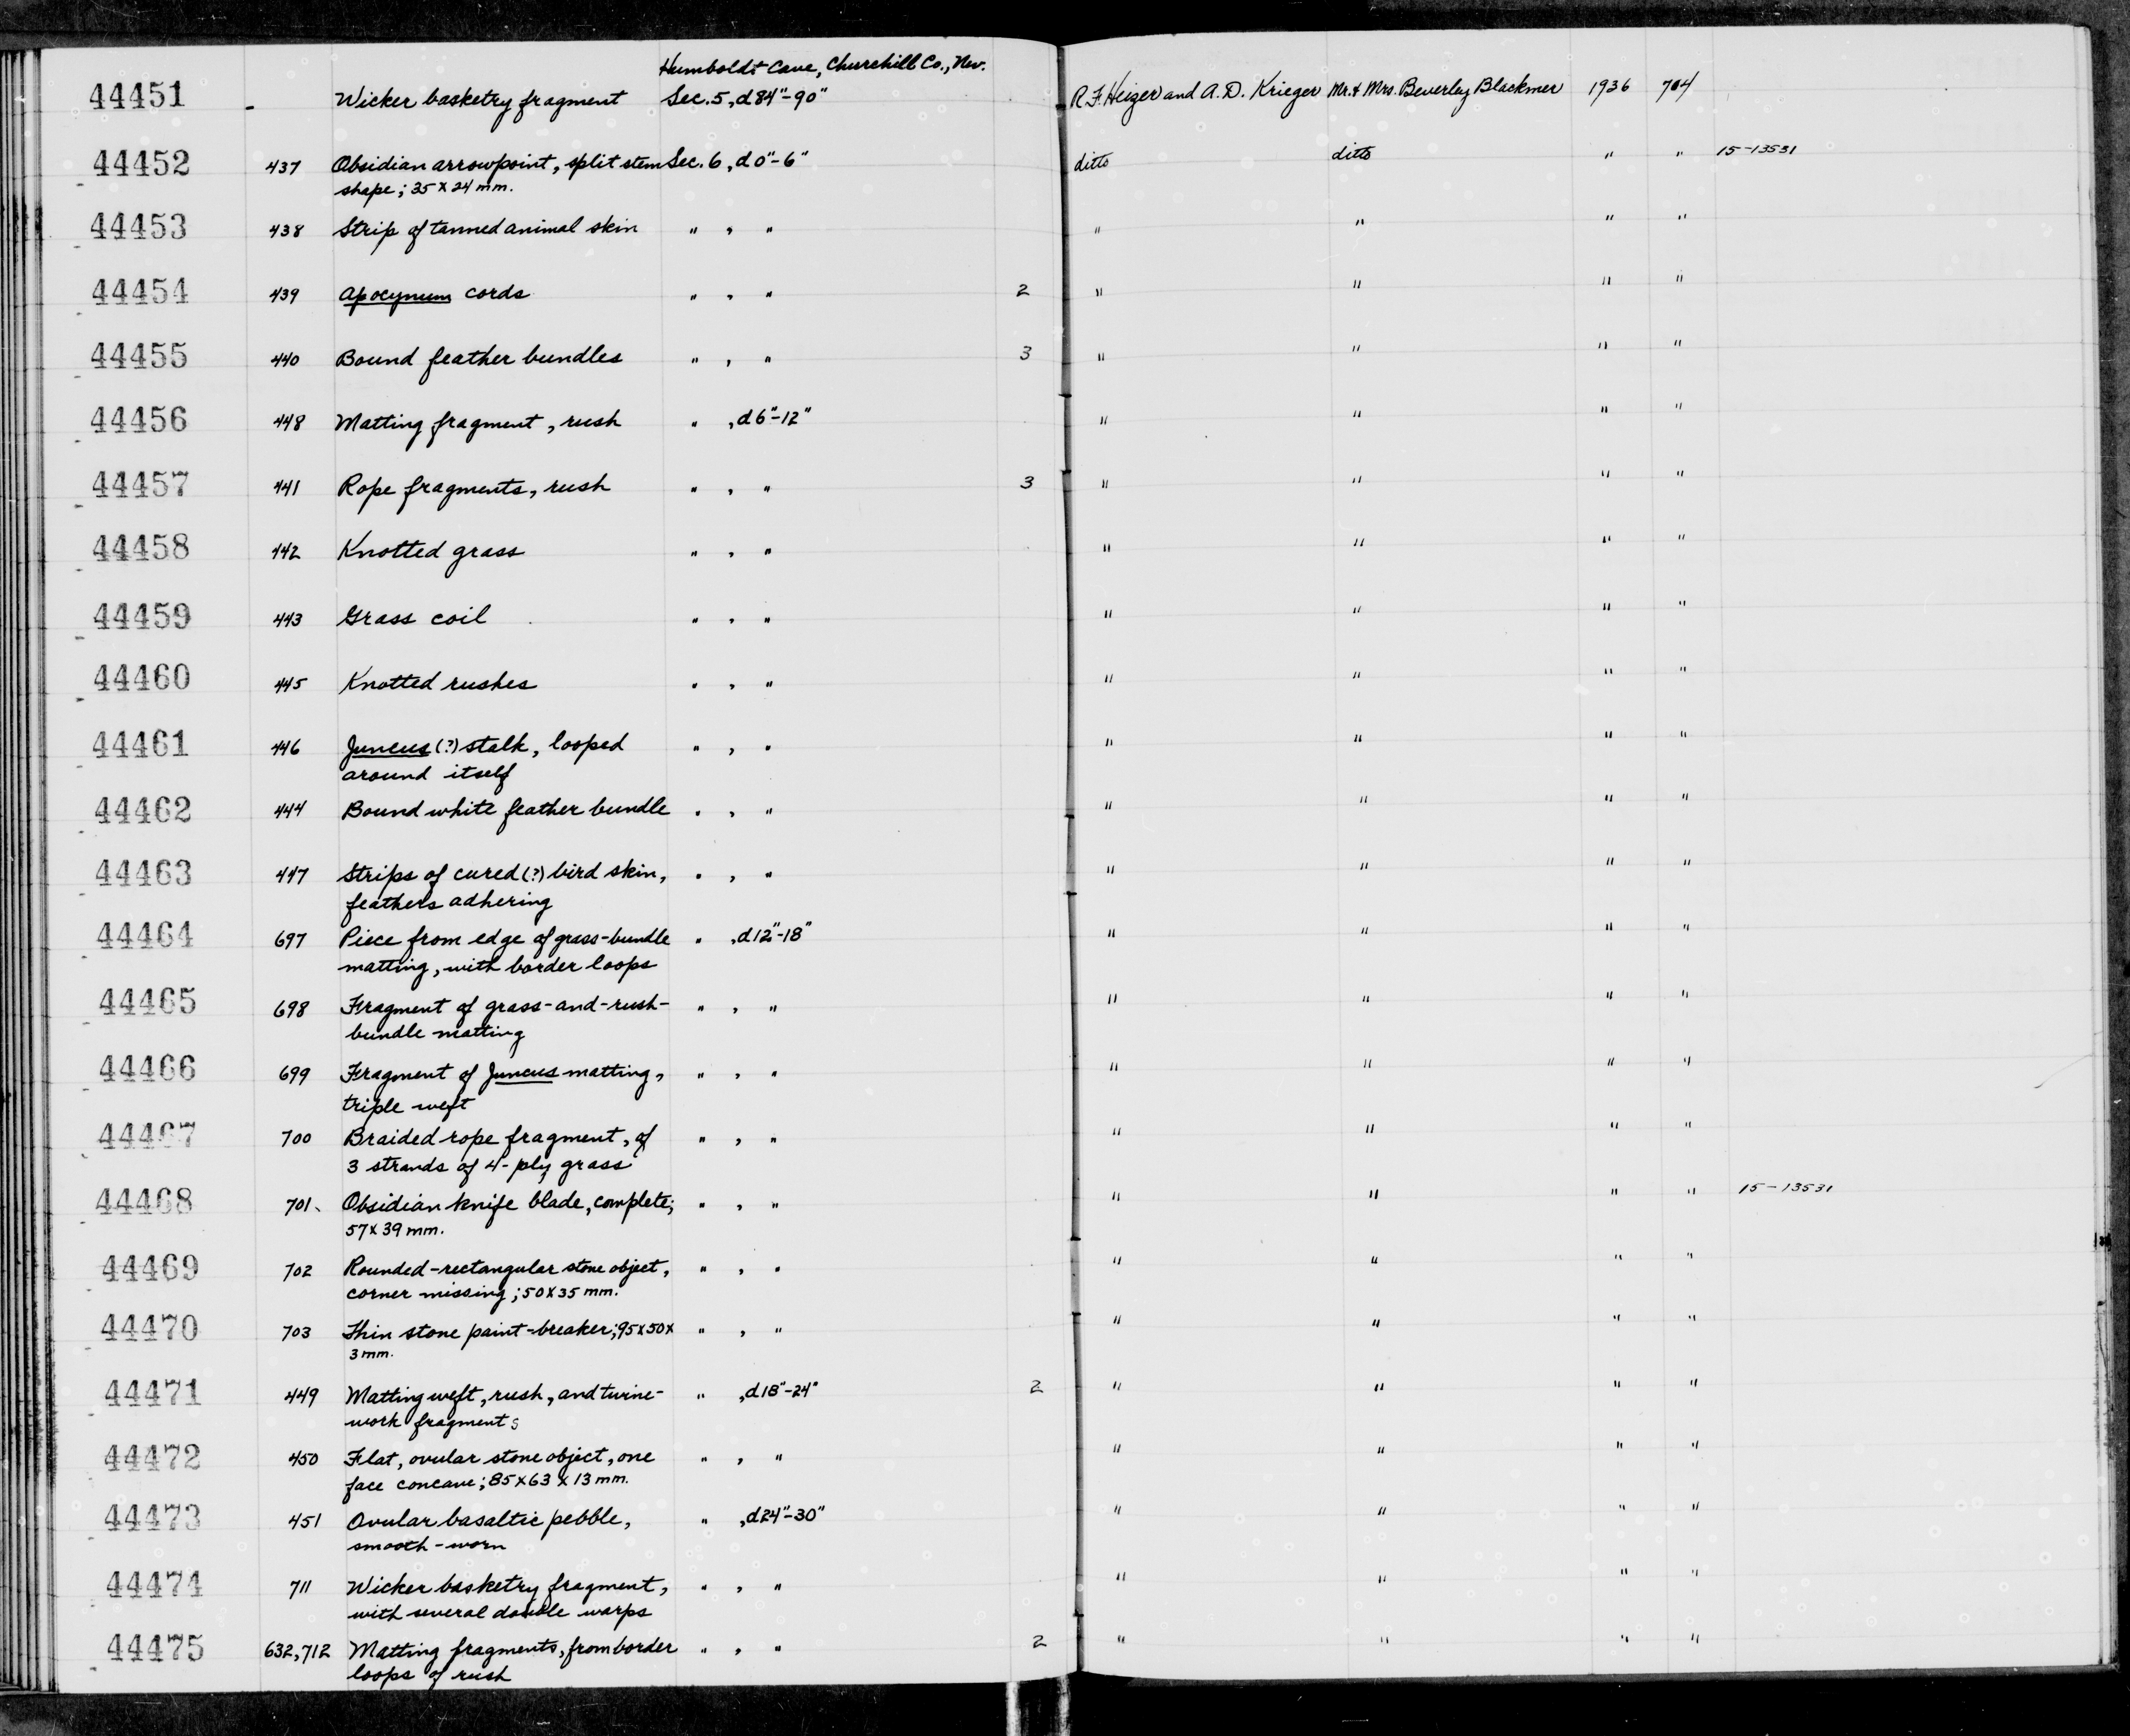 Humboldt Cave, Churchill Co., Nev.
44451 - Wicker basketry fragment Sec. 5, d 84"-90" R.F. Heizer and A.D. Krieger Mr. & Mrs. Beverley Blackmer 1936 704
44452 437 Obsidian arrowpoint, split stem Sec. 6, d 0"-6" ditto ditto " " 15-13531
shape; 35 x 24 mm.
44453 438 Strip of tanned animal skin " , " " " " "
44454 439 Apocynum cords " , " 2 " " " "
44455 440 Bound feather bundles " , " 3 " " " "
44456 448 Matting fragment, rush " , d 6"-12" " " " "
44457 441 Rope fragments, rush " , " 3 " " " "
44458 442 Knotted grass " , " " " " "
44459 443 Grass coil " , " " " " "
44460 445 Knotted rushes " , " " " " "
44461 446 Juncus (?) stalk, looped " , " " " " "
around itself
44462 444 Bound white feather bundle " , " " " " "
44463 447 Strips of cured (?) bird skin, " , " " " " "
feathers adhering
44464 697 Piece from edge of grass-bundle " , d 12"-18" " " " "
matting, with border loops
44465 698 Fragment of grass-and-rush- " , " " " " "
bundle matting
44466 699 Fragment of Juncus matting, " , " " " " "
triple weft
44467 700 Braided rope fragment, of " , " " " " "
3 strands of 4-ply grass
44468 701 Obsidian knife blade, complete; " , " " " " " 15-13531
57 x 39 mm.
44469 702 Rounded-rectangular stone object, " , " " " " "
corner missing; 50 x 35 mm.
44470 703 Thin stone paint-breaker; 95 x 50 x " , " " " " "
3 mm.
44471 449 Matting weft, rush, and twine- " , d 18"-24" 2 " " " "
work fragments
44472 450 Flat, ovular stone object, one " , " " " " "
face concave; 85 x 63 x 13 mm.
44473 451 Ovular basaltic pebble, " , d 24"-30" " " " "
smooth-worn
44474 711 Wicker basketry fragment, " , " " " " "
with several double warps
44475 632, 712 Matting fragments, from border " , " 2 " " " "
loops of rush